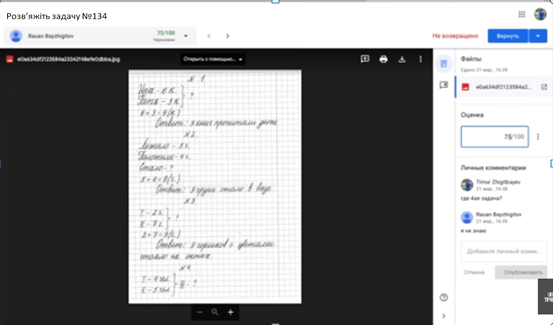 Розв'яжіть задачу №134
Rauan Bayzhigitov
75/100
Черновик
Не возвращено
Вернуть
e0a634df2123584a23342f48efe0dbba.jpg
Открыть с помощью...
№ 1.
Ира - 6 к.
Петя - 3 к.
?
6 + 3 = 9 (к.)
Ответ: 9 книг прочитали дети.
№ 2.
Лежало - 5 г.
Положили - 4 г.
Стало - ?
5 + 4 = 9 (г.)
Ответ: 9 груш стало в вазе.
№ 3.
I - 2 г.
II - 7 г.
?
2 + 7 = 9 (г.)
Ответ: 9 горшков с цветами
стояло на окнах.
№ 4.
Файлы
Сдано 21 мар., 16:39
e0a634df2123584a2...
Оценка
75/100
Личные комментарии
Timur Zhigitbayev
21 мар., 16:38
где 4ая задача?
Rauan Bayzhigitov
21 мар., 16:39
я не знаю
Добавьте личный комме...
Отмена
Опубликовать